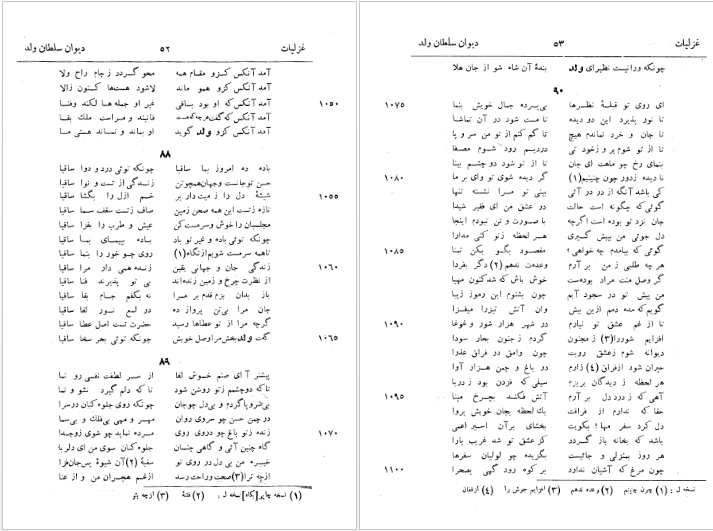 غزلیات ۵۲ دیوان سلطان ولد
آمد آنکس کزو مقام همه محو گردد ز جام راح ولا
آمد آنکس کزو همو ماند لاشود هست‌ها کنون زالا
۱۰۵۰ آمد آنکس که او بود ساقی غیر او جمله‌ها لکند وفنا
آمد آنکس که گفت هرچه که هست فانیند و مراست ملک بقا
آمد آنکس کزو ولد گوید او بماند و نماند هستی ما
۸۸
باده ده امروز بما ساقیا چونکه توئی درد و دوا ساقیا
حسن تو جانست و جهان همچو تن زندگی از تست و نوا ساقیا
۱۰۵۵ شیشهٔ دل را ز می‌ت دار پر خم ازل را بگشا ساقیا
تازه زتست این همه صحن زمین صاف زتست سقف سما ساقیا
مجلسیان را خوش و سرمست کن عیش و طرب را بفزا ساقیا
چونکه توئی باده و غیر تو باد باده بپیمای بما ساقیا
تاهمه سرمست شویم ازنگاه(۱) روی چو خود را بنما ساقیا
۱۰۶۰ زندگی جان و جهانی یقین زنده همی داد مرا ساقیا
از نظرت چرخ و زمین زنده‌اند بی تو پذیرند فنا ساقیا
باز بدان بزم قدم بر مرا نه بکفم جام بقا ساقیا
جان مرا بی‌تن پرواز ده در لمع نور لقا ساقیا
گرچه مرا از تو عطاها رسید حضرت تست اصل عطا ساقیا
۱۰۶۵ گفت ولد بخش مرا وصل خویش چونکه توئی بحر سخا ساقیا
۸۹
بیشتر آ ای صنم خوش لقا از سر لطفت نفسی رو نما
تاکه دو چشمم ز تو روشن شود تا که دلم گیرد نشو و نما
بی‌شرو پا گردم و بی‌دل چو جان چونکه روی جلوه کنان دوسرا
در چمن حسن چو سروی روان مهر و مهی بی‌فلک و بی‌سما
۱۰۷۰ زنده ز تو باغ چو در وی روی مرده نماند چو شوی زو جدا
گاه چنین آئی و گاهی چنان جلوه کنان سوی من ای دلربا
خیره من بی دل در روی تو سفبهٔ (۲) آن شیوهٔ بس جان‌فزا
ازچه ترا(۳) صحت وراحت رسد ازغم هجران من و از عنا
(۱) نسخه چاپر [بگاه] نسخه ل : (۲) فتنهٔ (۳) ازچه بتو
غزلیات ۵۳ دیوان سلطان ولد
چونکه ورا نیست نظیر ای ولد بندهٔ آن شاه شو از جان هلا
۹۰
۱۰۷۵ ای روی تو قبلهٔ نظرها بی‌پرده جمال خویش بنما
تا نور پذیرد این دو دیده تا مست شود در آن تماشا
تا جان و خرد نماندم هیچ تا گم کنم از تو من سر و پا
تا از تو شوم پر و ز خود تی دردیم رود شوم مصفا
بنمای رخ چو ماهت ای جان تا از تو شود دو چشم بینا
۱۰۸۰ نا دیده زدور چنینم(۱) گر دیده شوی تو وای بر ما
کی باشد آنکه از در در آئی بینی تو مرا نشسته تنها
گوئی که چگونه است حالت در عشق من ای فقیر شیدا
جان نزد تو بوده است اگرچه با صورت و تن نبودم اینجا
دل جوئی من بیش گیری هر لحظه ز نو کنی مدارا
۱۰۸۵ گوئی که بیامدم چه خواهی؟ مقصود بگو بکن تمنا
هر چه طلبی ز من بر آرم وعده‌ت ندهم (۲) دگر بفردا
گر وصل منت مراد بوده‌ست خوش باش که شد کنون مهیا
من پیش تو در سجود آیم چون بشنوم این رموز زیبا
گویم که مده دمم ازین بیش وان آتش تیزرا میفزا
۱۰۹۰ تا از غم عشق تو نیارم در شهر هزار شور و غوغا
افزایم شوررا(۳) ز مجنون گردم ز جنون بحار سودا
دیوانه شوم زعشق رویت چون وامق در فراق عذرا
حیران شود ازفراق (۴) زارم در باغ و چمن هزار آوا
هر لحظه ز دیدگان بریزم سیلی که فزون بود ز دریا
۱۰۹۵ آهی که ز درد دل بر آرم آتش فکند بچرخ مینا
حقا که ندارم از فراقت یک لحظه بجان خویش پروا
دل کرد سفر مها؛ بکویت بخشای بر آن اسیر اعمی
باشد که بخانه باز گردد کز عشق تو شد غریب یارا
هر روز بمنزلی و جائیست بگزیده چو لولیان سفرها
۱۱۰۰ چون مرغ که آشیان ندارد بر کوه رود گهی بصحرا
نسخه ل : (۱) چون چنینم (۲) وعده ندهم (۳) افزایم جوش را (۴) ازفغان